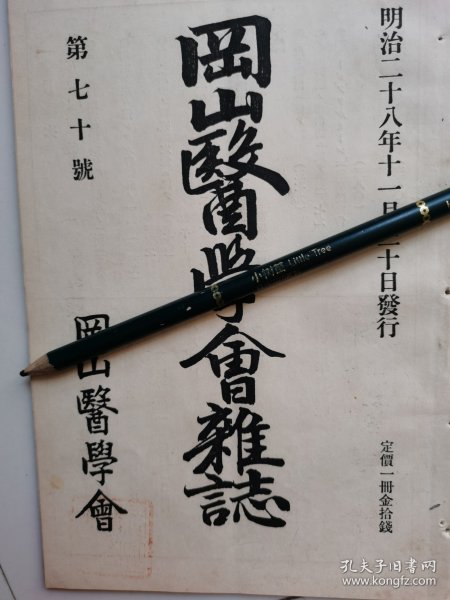 明治二十八年十一月十日發行
定價一冊金拾錢
岡山醫學會雜誌
第七十號
岡山醫學會
Little Tree
孔夫子旧书网
www.kongfz.com